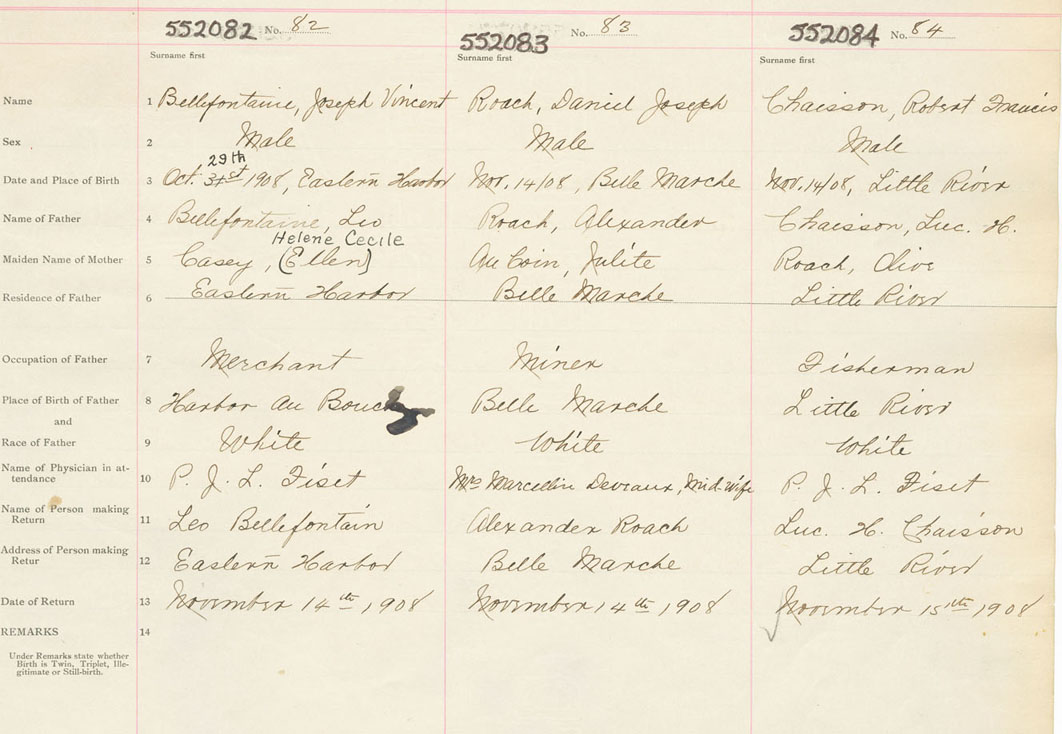 552082 No. 82 552083 No. 83 552084 No. 84
Surname first Surname first Surname first
Name 1 Bellefontaine, Joseph Vincent Roach, Daniel Joseph Chaisson, Robert Francis
Sex 2 Male Male Male
29th
Date and Place of Birth 3 Oct. 31st 1908, Eastern Harbor Nov. 14/08, Belle Marche Nov. 14/08, Little River
Name of Father 4 Bellefontaine, Leo Roach, Alexander Chaisson, Luc. H.
Helene Cecile
Maiden Name of Mother 5 Casey, (Ellen) Au Coin, Julite Roach, Olive
Residence of Father 6 Eastern Harbor Belle Marche Little River
Occupation of Father 7 Merchant Miner Fisherman
Place of Birth of Father 8 Harbor Au Bouch Belle Marche Little River
and
Race of Father 9 White White White
Name of Physician in at-
tendance 10 P. J. L. Fiset Mrs Marcellin Deveaux, Mid-wife P. J. L. Fiset
Name of Person making
Return 11 Leo Bellefontain Alexander Roach Luc. H. Chaisson
Address of Person making
Retur 12 Eastern Harbor Belle Marche Little River
Date of Return 13 November 14th, 1908 November 14th, 1908 November 15th 1908
REMARKS 14
Under Remarks state whether
Birth is Twin, Triplet, Ille-
gitimate or Still-birth.